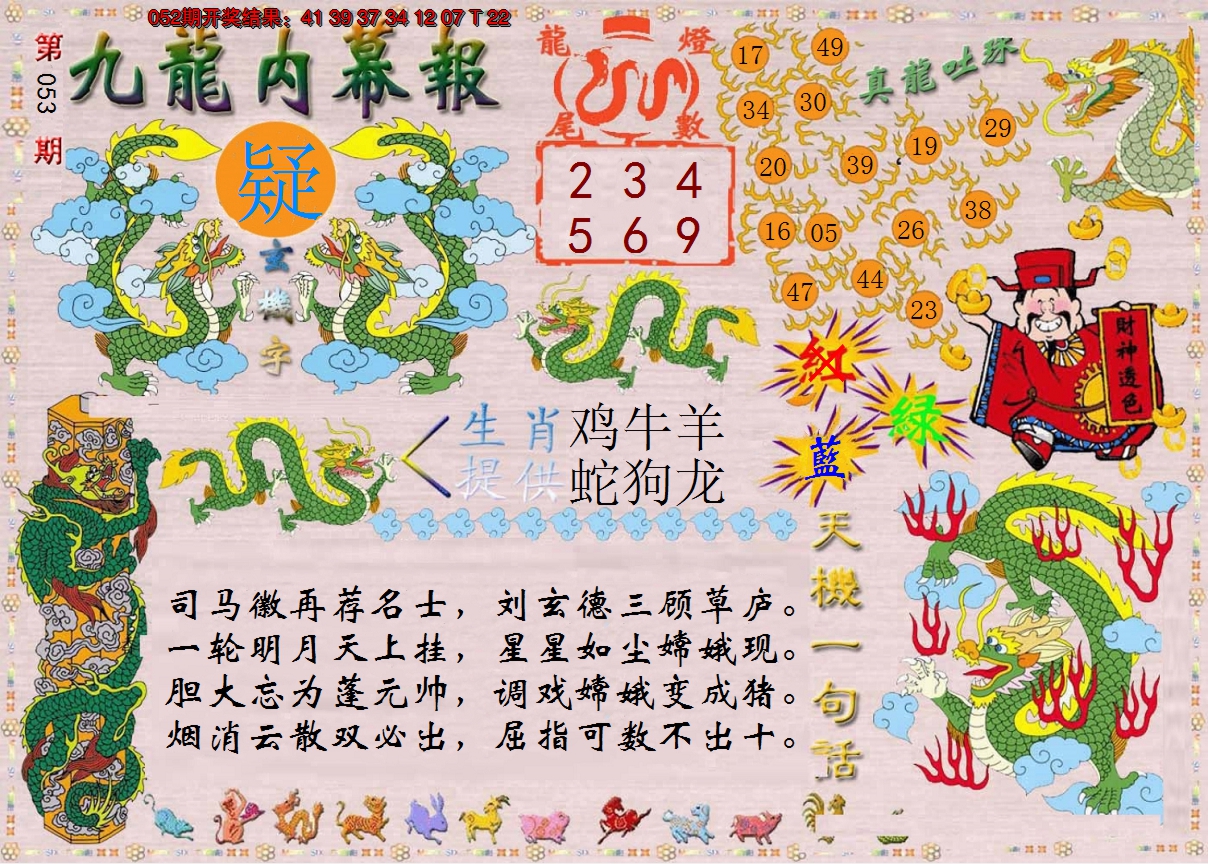 052期开奖结果：41 39 37 34 12 07 T 22
第053期
九龍内幕報
疑
玄機字
龍燈
尾數
2 3 4
5 6 9
真龍吐珠
17
49
34
30
29
19
20
39
38
16
05
26
44
47
23
紅
綠
藍
財神透色
生肖
提供
鸡牛羊
蛇狗龙
司马徽再荐名士，刘玄德三顾草庐。
一轮明月天上挂，星星如尘嫦娥现。
胆大忘为蓬元帅，调戏嫦娥变成猪。
烟消云散双必出，屈指可数不出十。
天機一句話